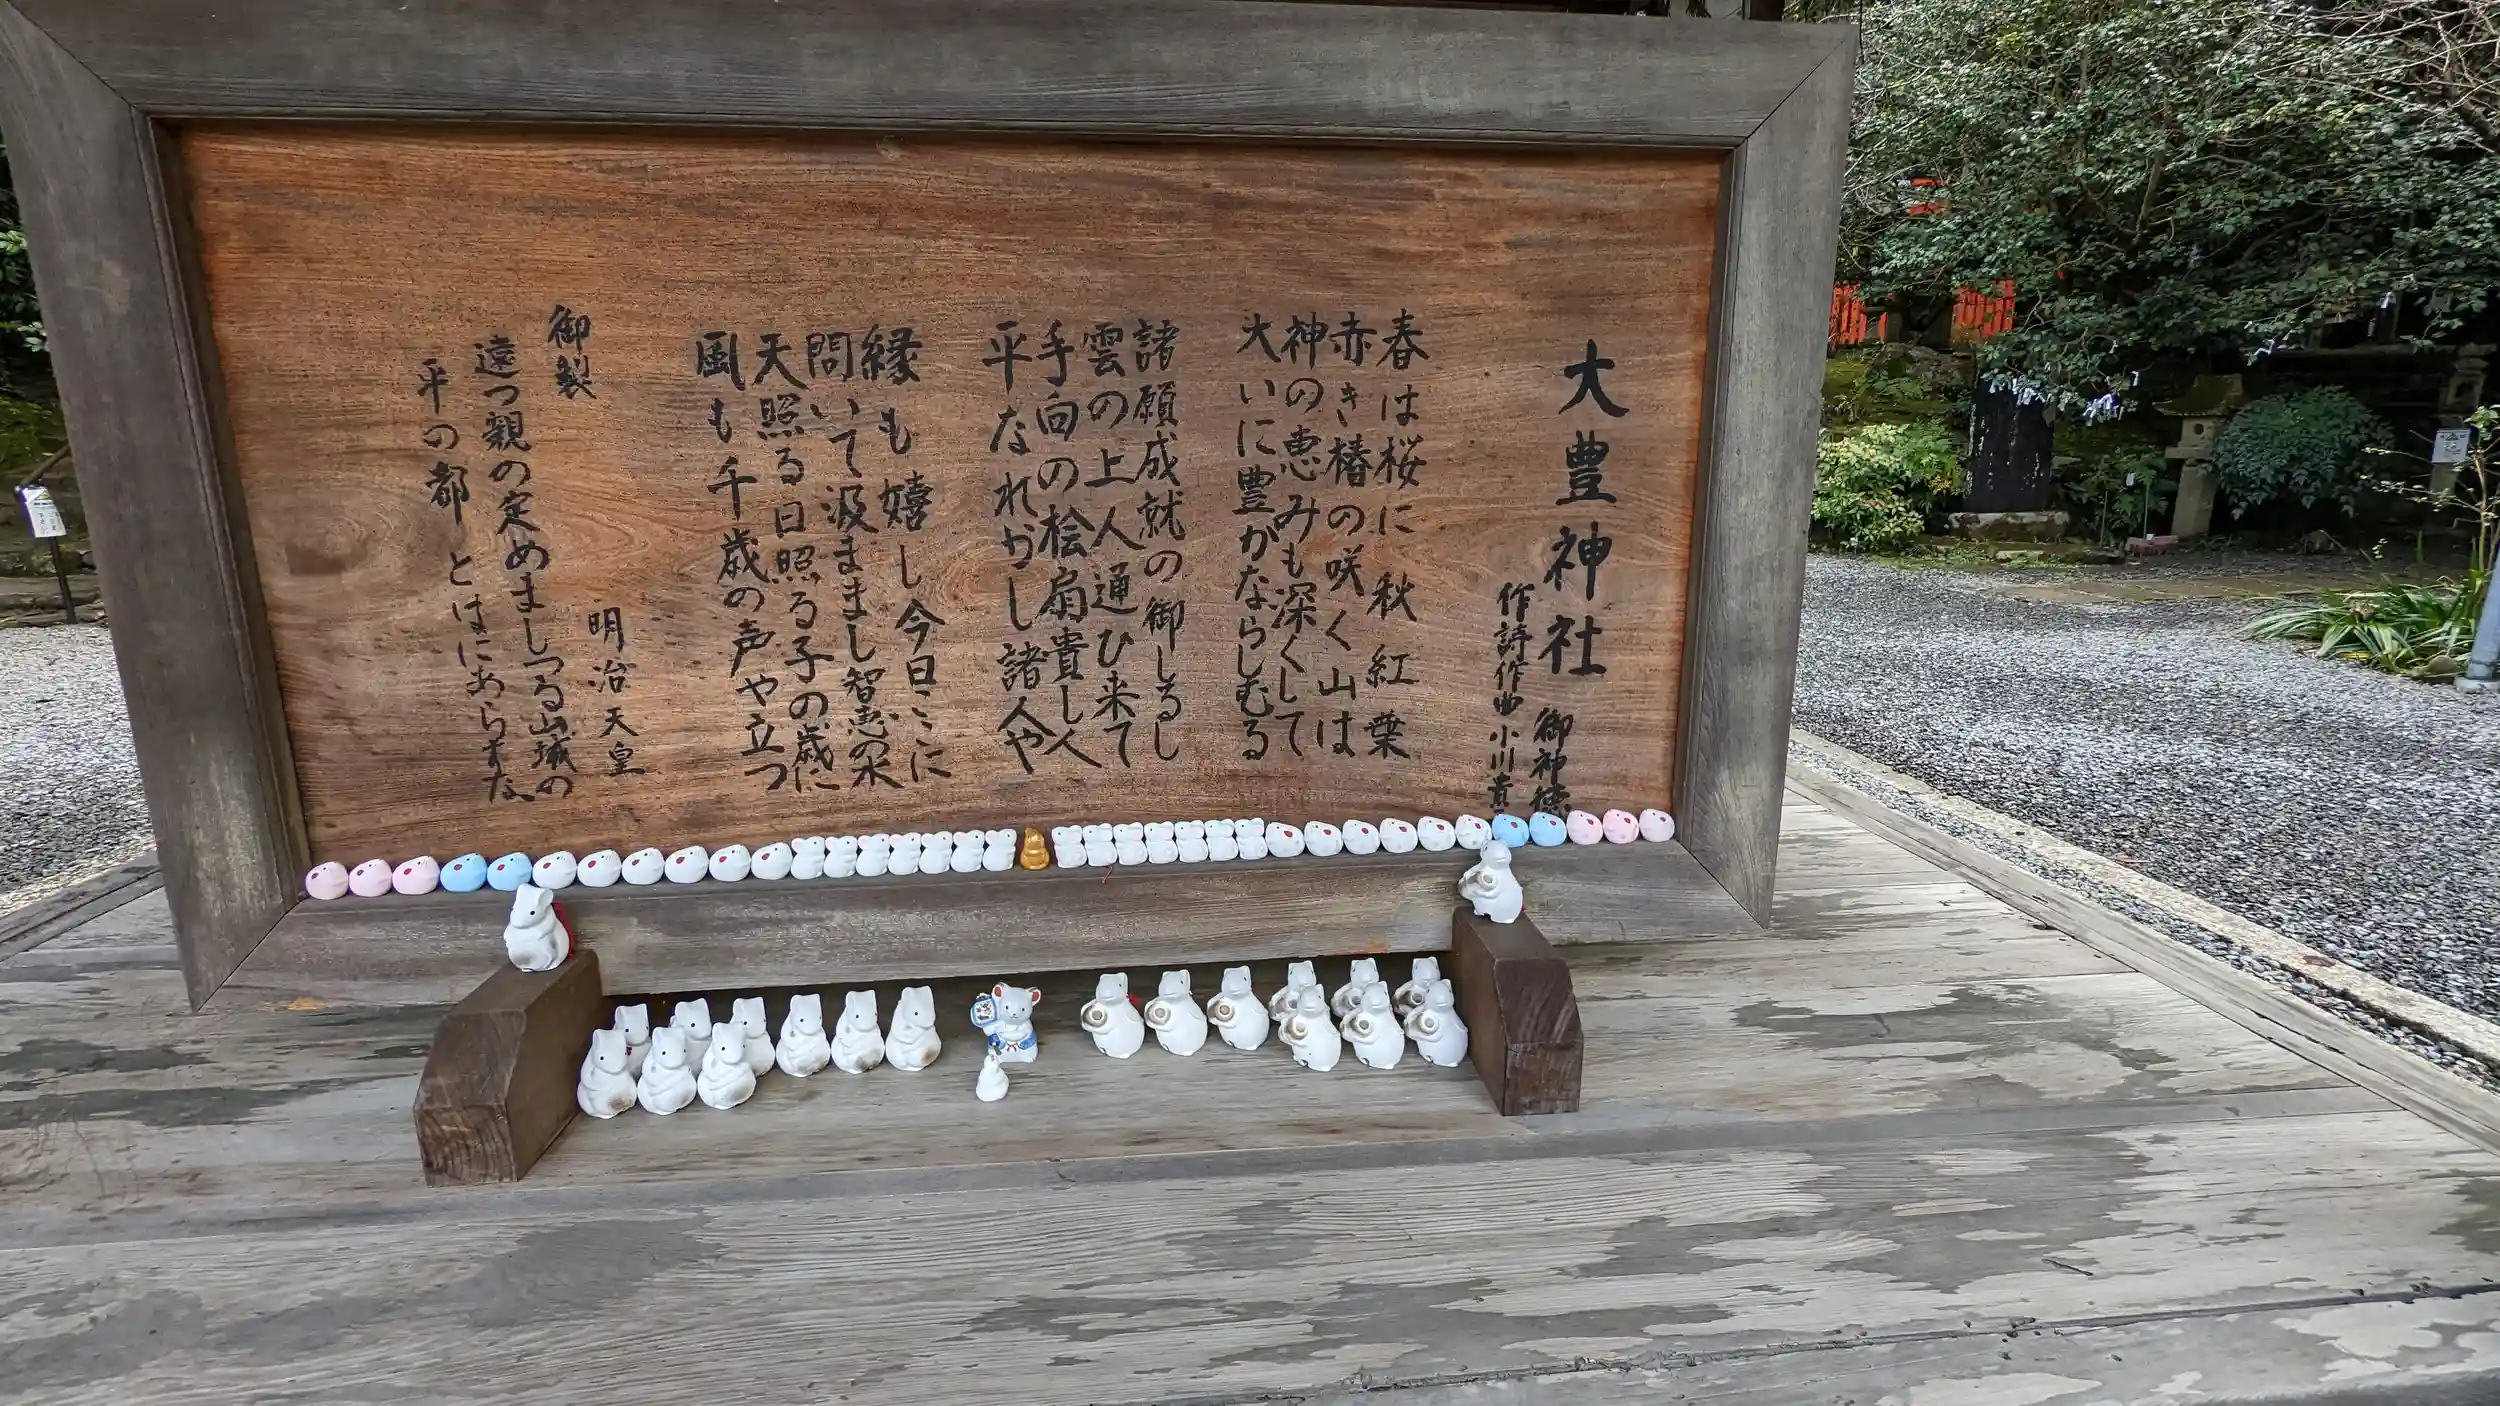 大豊神社
御神徳
作詩作曲 小川貴
春は桜に 秋紅葉
赤き椿の咲く山は
神の恵みも深くして
大いに豊かならしむる
諸願成就の御しるし
雲の上人通ひ来て
手向の桧扇貴し人
平なれかし諸人や
縁も嬉し今日ここに
問いて汲ままし智恵の水
天照る日照る子の歳に
風も千歳の声や立つ
御製
明治天皇
遠つ親の定めましつる山城の
平の都とはにあらすな